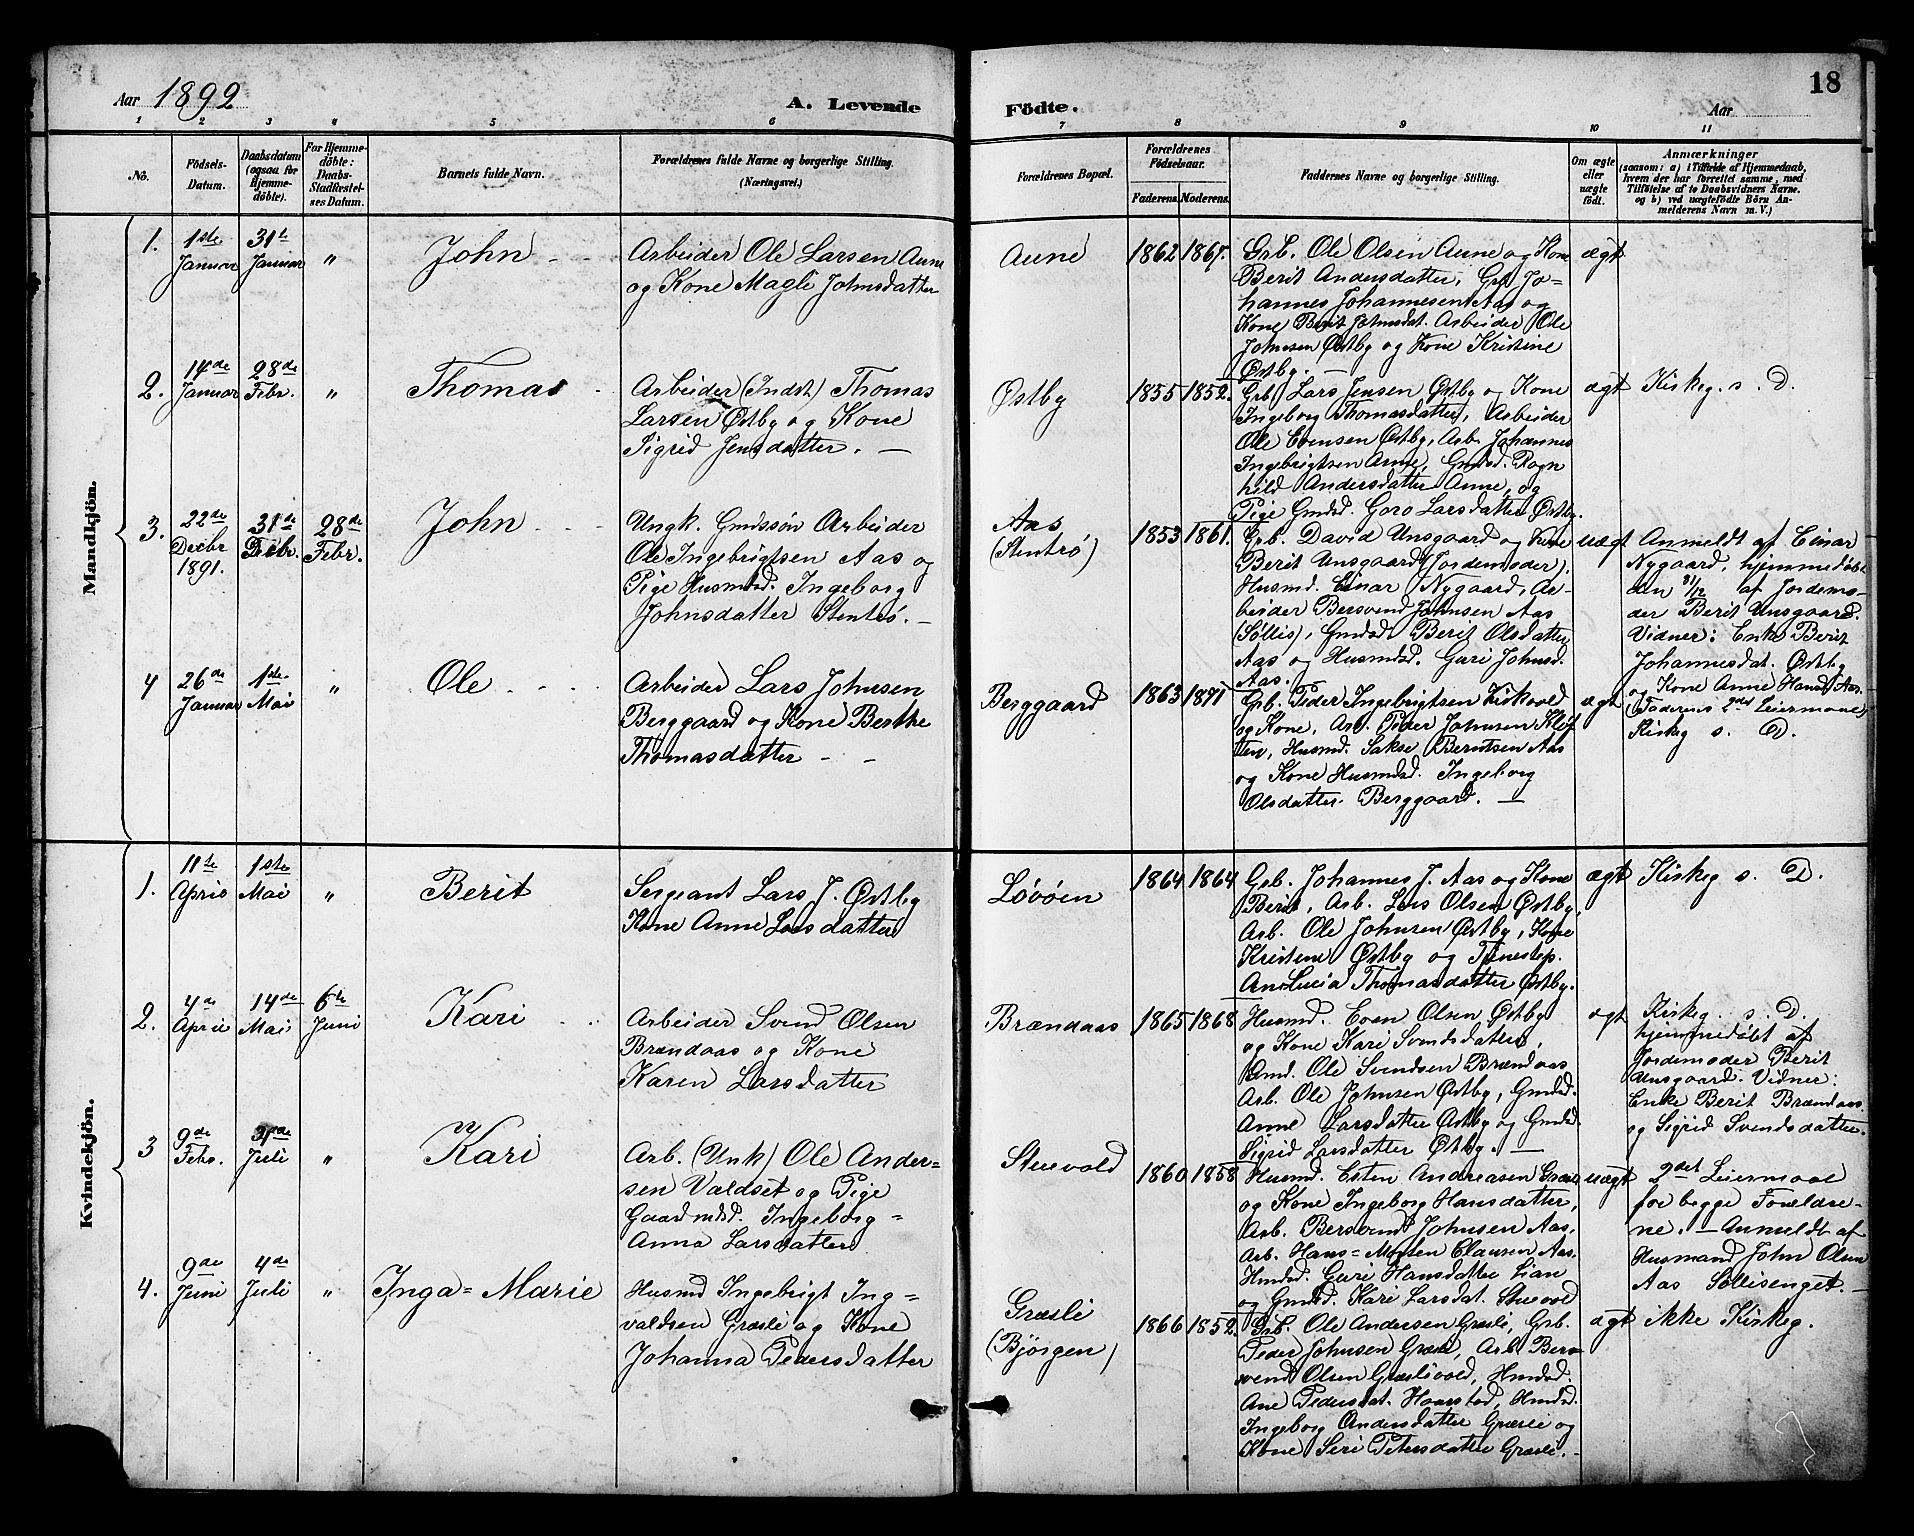 Aar 1892
A. Levende
Födte.
Aar
18
1 2 3 4 5 6 7 8 9 10 11
No.
Födsels-
Datum.
Daabsdatum
(ogsaa for
Hjemme-
döbte).
For Hjemme-
döbte:
Daabs-
Stadfæstel-
ses Datum.
Barnets fulde Navn.
Forældrenes fulde Navne og borgerlige Stilling.
(Næringsvei.)
Forældrenes Bopæl.
Forældrenes
Födselsaar.
Faderens. Moderens.
Faddernes Navne og borgerlige Stilling.
Om ægte
eller
uægte
födt.
Anmærkninger
(saasom: a) i Tilfælde af Hjemmedaab,
hvem der har forrettet samme, med
Tilföielse af to Daabsvidners Navne.
og b) ved uægtefödte Börn An-
melderens Navn m. V.)
Mandkjön.
1. 1ste Januar
31te Januar
"
John
Arbeider Ole Larsen Aune
og Kone Magli Johnsdatter
Aune
1862
Grb. Ole Olsen Aune og Kone
Berit Andersdatter, Grb Jo=
hannes Johannesen Aas og
Kone Berit Johnsdat. Arbeider Ole
Johnsen Østby og Kone Kristine
Østby. —
ægt
2. 14de Januar
28de Febr.
"
Thomas
Arbeider (Indst) Thomas
Larsen Østby og Kone
Sigrid Jensdatter. —
Østby
1855 1852.
Grb. Lars Jensen Østby og Kone
Ingeborg Thomasdatter, Arbeider
Ole Evensen Østby, Arb. Johannes
Ingebrigtsen Aune, Gmdsd. Ragn
hild Andersdatter Aune, og
Pige Gmdsd. Goro Larsdatter Østby.
ægt
Kirkeg. s. D.
3. 22de Decbr 1891.
31de Decbr.
28de Febr.
John
Ungk. Gmdssön Arbeider
Ole Ingebrigtsen Aas og
Pige Husmdsd. Ingeborg
Johnsdatter Stentrø. —
Aas
(Stentrø)
1853 1861.
Grb. David Unsgaard og Kone
Berit Unsgaard (Jordemoder),
Husmd. Einar Nygaard, Ar-
beider Bersvend Johnsen Aas
(Søllis), Gmdsd Berit Olsdatter
Aas og Husmdsd. Guri Johnsd.
Aas. —
uægt
Anmeldt af Einar
Nygaard, hjemmedøbt
den 31/12 af Jordemo-
der Berit Unsgaard.
Vidner: Enke Berit
Johannesdat. Østby
og Kone Anne Hansd Aas.
(Faderens 2det Leiermaal)
4 26de Januar
1ste Mai
"
Ole
Arbeider Lars Johnsen
Berggaard og Kone Berthe
Thomasdatter - -
Berggaard
1863 1871
Grb. Peder Ingebrigtsen Kirkvold
og Kone, Arb. Peder Johnsen Kløf
ten, Husmd. Sakse Berntsen Aas
og Kone Husmdsd. Ingeborg
Olsdatter Berggaard. —
ægt
Kirkeg s. D.
Kvindekjön.
1. 11te April
1ste Mai
"
Berit
Sergeant Lars J. Østby
Kone Anne Larsdatter
Løvøen
1864 1864
Grb. Johannes J. Aas og Kone
Berit, Arb. Lars Olsen Østby,
Arb. Ole Johnsen Østby, Kone
Kristine Østby og Tjenestep.
Ane Lucia Thomasdatter Østby.
ægt
Kirkeg s. D.
2. 4de April
14de Mai
6te Juni
Kari
Arbeider Svend Olsen
Brændaas og Kone
Karen Larsdatter
Brændaas
1865 1868
Husmd. Even Olsen Østby
og Kone Kari Svendsdatter,
Gmd. Ole Svendsen Brændaas
Arb. Ole Johnsen Østby, Gmdsd.
Anne Larsdatter Østby og Gmdsd.
Sigrid Larsdatter Østby. —
ægt
Kirkeg. s. D.
hjemmedøbt af
Jordemoder Berit
Unsgaard. Vidner:
Enke Berit Brændaas
og Sigrid Svendsdatter.
3 9de Febr.
Juli
"
Kari
Arb. (Unk) Ole Ander=
sen Valdset og Pige
Gaardmdsd. Ingeborg=
Anna Larsdatter
Stuevold
1860 1858
Husmd. Esten Andreasen Græsli
og Kone Ingeborg Hansdatter,
Arb. Bersvend Johnsen Aas,
Arb. Hans=Morten Clausen Aas.
Hmdsd. Guri Hansdatter Lian
og Gmdsd. Kari Larsdat. Stuevold
uægt
2det Leiermaal
for begge Forældre-
ne. — Anmeldt af
Husmand John Olsen
Aas Søllisenget. —
4. 9de Juni
4de Juli
"
Inga=Marie
Husmd Ingebrigt Ing=
valdsen Græsli og Kone
Johanna Pedersdatter
Græsli
(Bjørgen)
1866 1852.
Grb. Ole Andersen Græsli, Grb.
Peder Johnsen Græsli, Arb. Bers
vend Olsen Græslivold, Hmdsd.
Ane Pedersdat. Haarstad, Hmdsd.
Ingeborg Andersdatter Græsli og
Kone Siri Petersdatter Græsli. -
ægt
ikke Kirkeg.